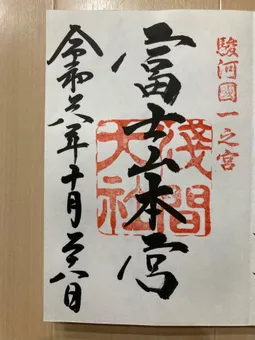 駿河國一之宮
富士山本宮
淺間
大社
令和六年十月 日